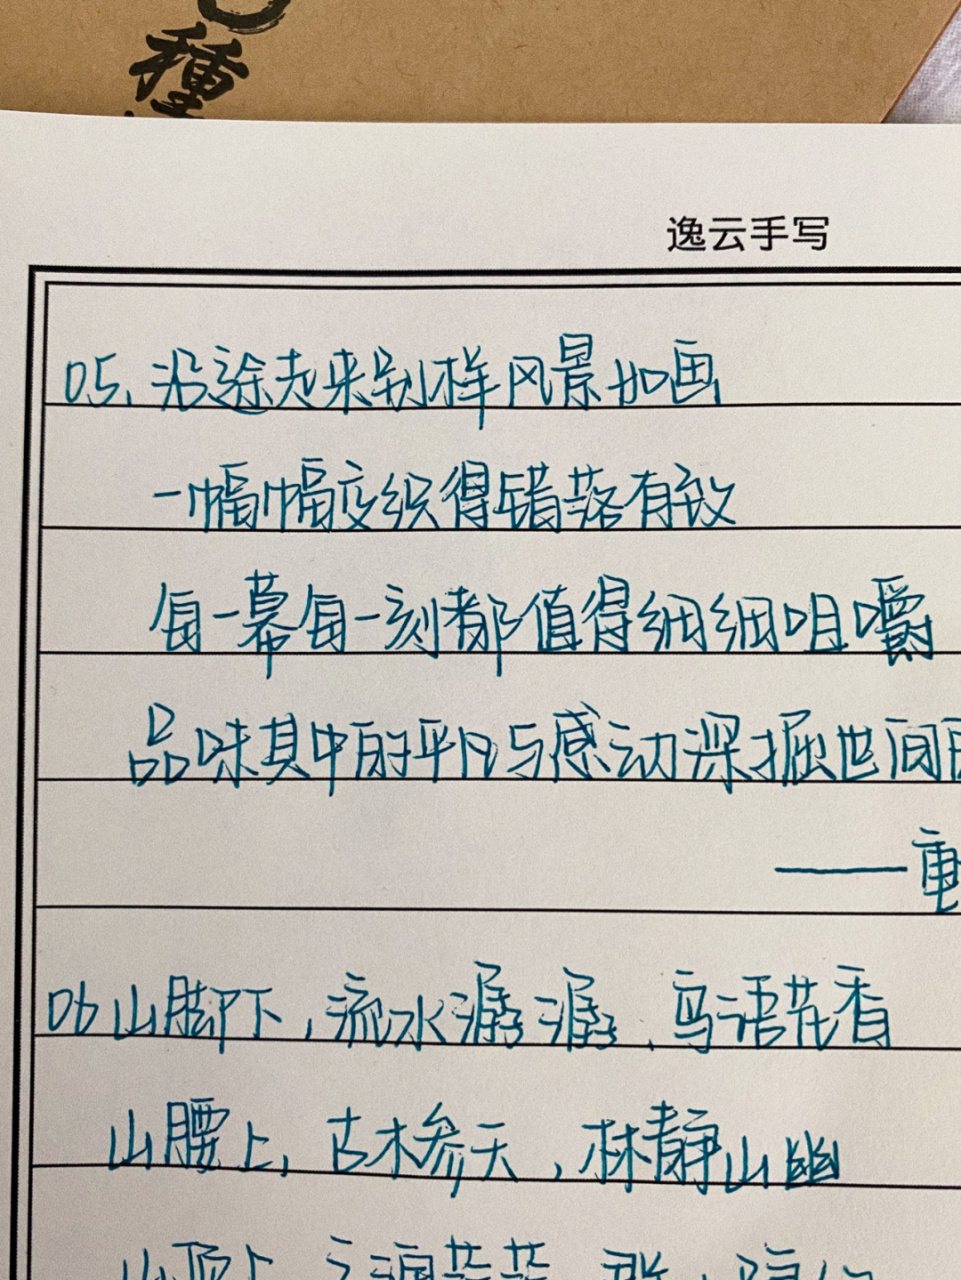 種
逸云手写
05.沿途走来别样风景如画
一幅幅交织得错落有致
每一幕每一刻都值得细细咀嚼
品味其中的平凡与感动深掘世间
——重
06山脚下,流水潺潺,鸟语花香
山腰上,古木参天,林静山幽
山顶上